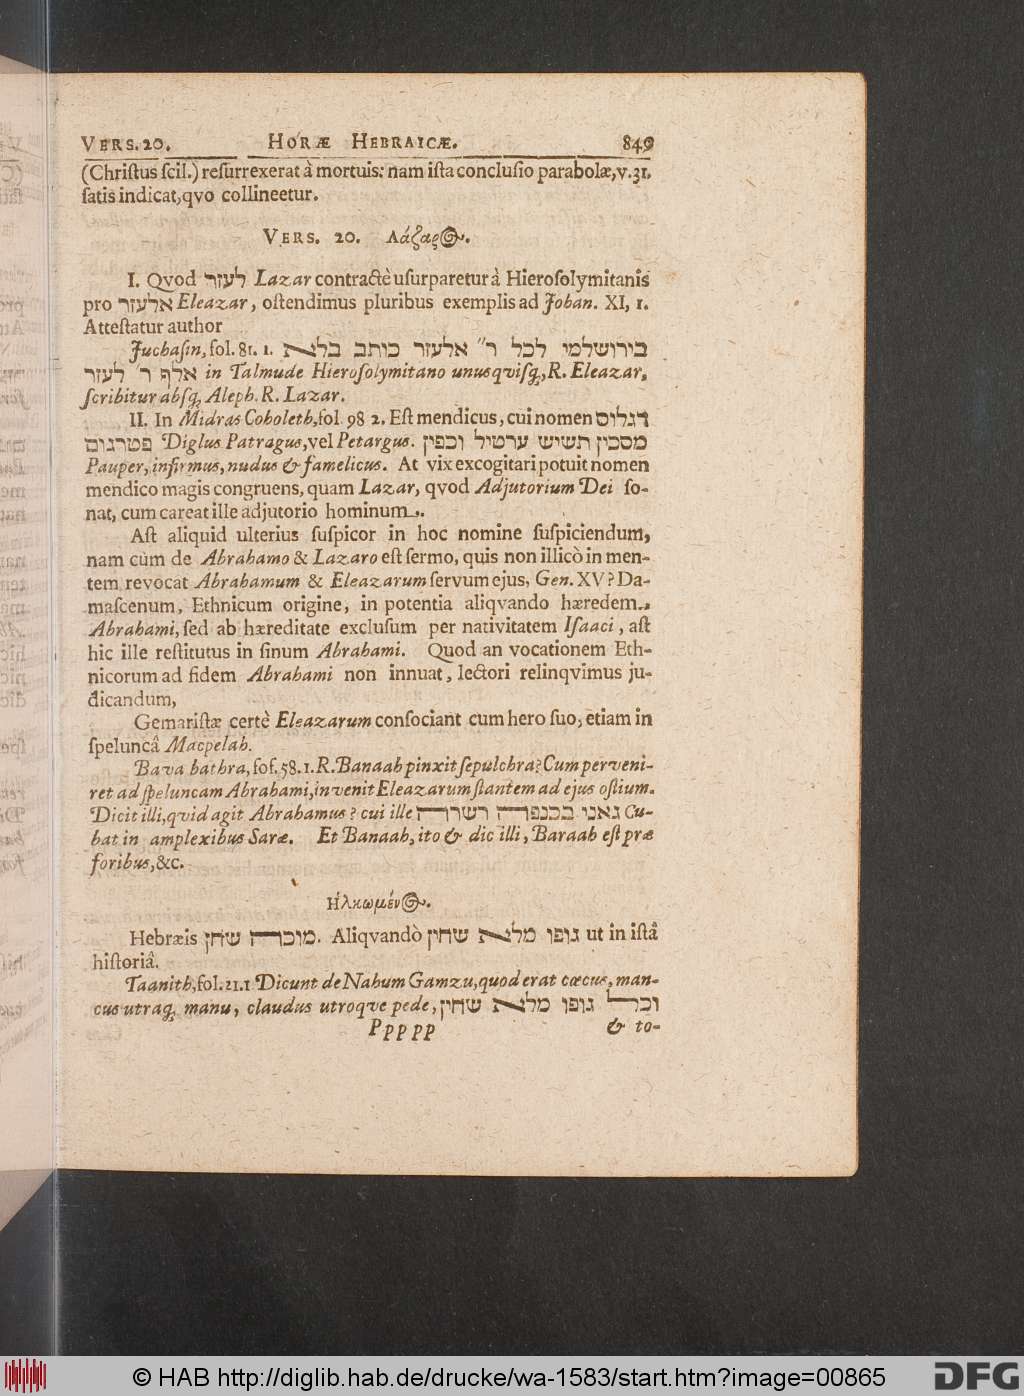 VERS. 20. HORÆ HEBRAICÆ. 849
(Chriſtus ſcil.) reſurrexerat à mortuis: nam iſta concluſio parabolæ, v. 31.
ſatis indicat, qvo collineetur.
VERS. 20. Λάζαρος.
I. Qvod לעזר Lazar contractè uſurparetur à Hieroſolymitanis
pro אלעזר Eleazar, oſtendimus pluribus exemplis ad Johan. XI, 1.
Atteſtatur author
Juchaſin, fol. 81. 1. בירושלמי לכל ר״ אלעזר כותב בלא
אלף ר׳ לעזר in Talmude Hieroſolymitano unusqviſq;, R. Eleazar,
ſcribitur abſq; Aleph. R. Lazar.
II. In Midras Coholeth, fol. 98 2. Eſt mendicus, cui nomen דגלוס
פטרגוס Diglus Patragus, vel Petargus. מסכין תשיש ערטיל וכפין
Pauper, infirmus, nudus & famelicus. At vix excogitari potuit nomen
mendico magis congruens, quam Lazar, qvod Adjutorium Dei ſo-
nat, cum careat ille adjutorio hominum.
Aſt aliquid ulterius ſuſpicor in hoc nomine ſuſpiciendum,
nam cùm de Abrahamo & Lazaro eſt ſermo, quis non illicò in men-
tem revocat Abrahamum & Eleazarum ſervum ejus, Gen. XV? Da-
maſcenum, Ethnicum origine, in potentia aliqvando hæredem
Abrahami, ſed ab hæreditate excluſum per nativitatem Iſaaci, aſt
hic ille reſtitutus in ſinum Abrahami. Quod an vocationem Eth-
nicorum ad fidem Abrahami non innuat, lectori relinqvimus ju-
dicandum,
Gemariſtæ certè Eleazarum conſociant cum hero ſuo, etiam in
ſpeluncâ Macpelah.
Bava bathra, fol. 58. 1. R. Banaah pinxit ſepulchra? Cum perveni-
ret ad ſpeluncam Abrahami, invenit Eleazarum ſtantem ad ejus oſtium.
Dicit illi, qvid agit Abrahamus? cui ille גאני בכנפה דשרה Cu-
bat in amplexibus Saræ. Et Banaah, ito & dic illi, Baraah eſt præ
foribus, &c.
Ηλκωμένος.
Hebræis מוכה שחן. Aliqvandò גופו מלא שחין ut in iſtâ
hiſtoriâ.
Taanith, fol. 21. 1 Dicunt de Nahum Gamzu, quod erat cœcus, man-
cus utraq; manu, claudus utroqve pede, וכל גופו מלא שחין
Ppppp & to-
© HAB http://diglib.hab.de/drucke/wa-1583/start.htm?image=00865
DFG